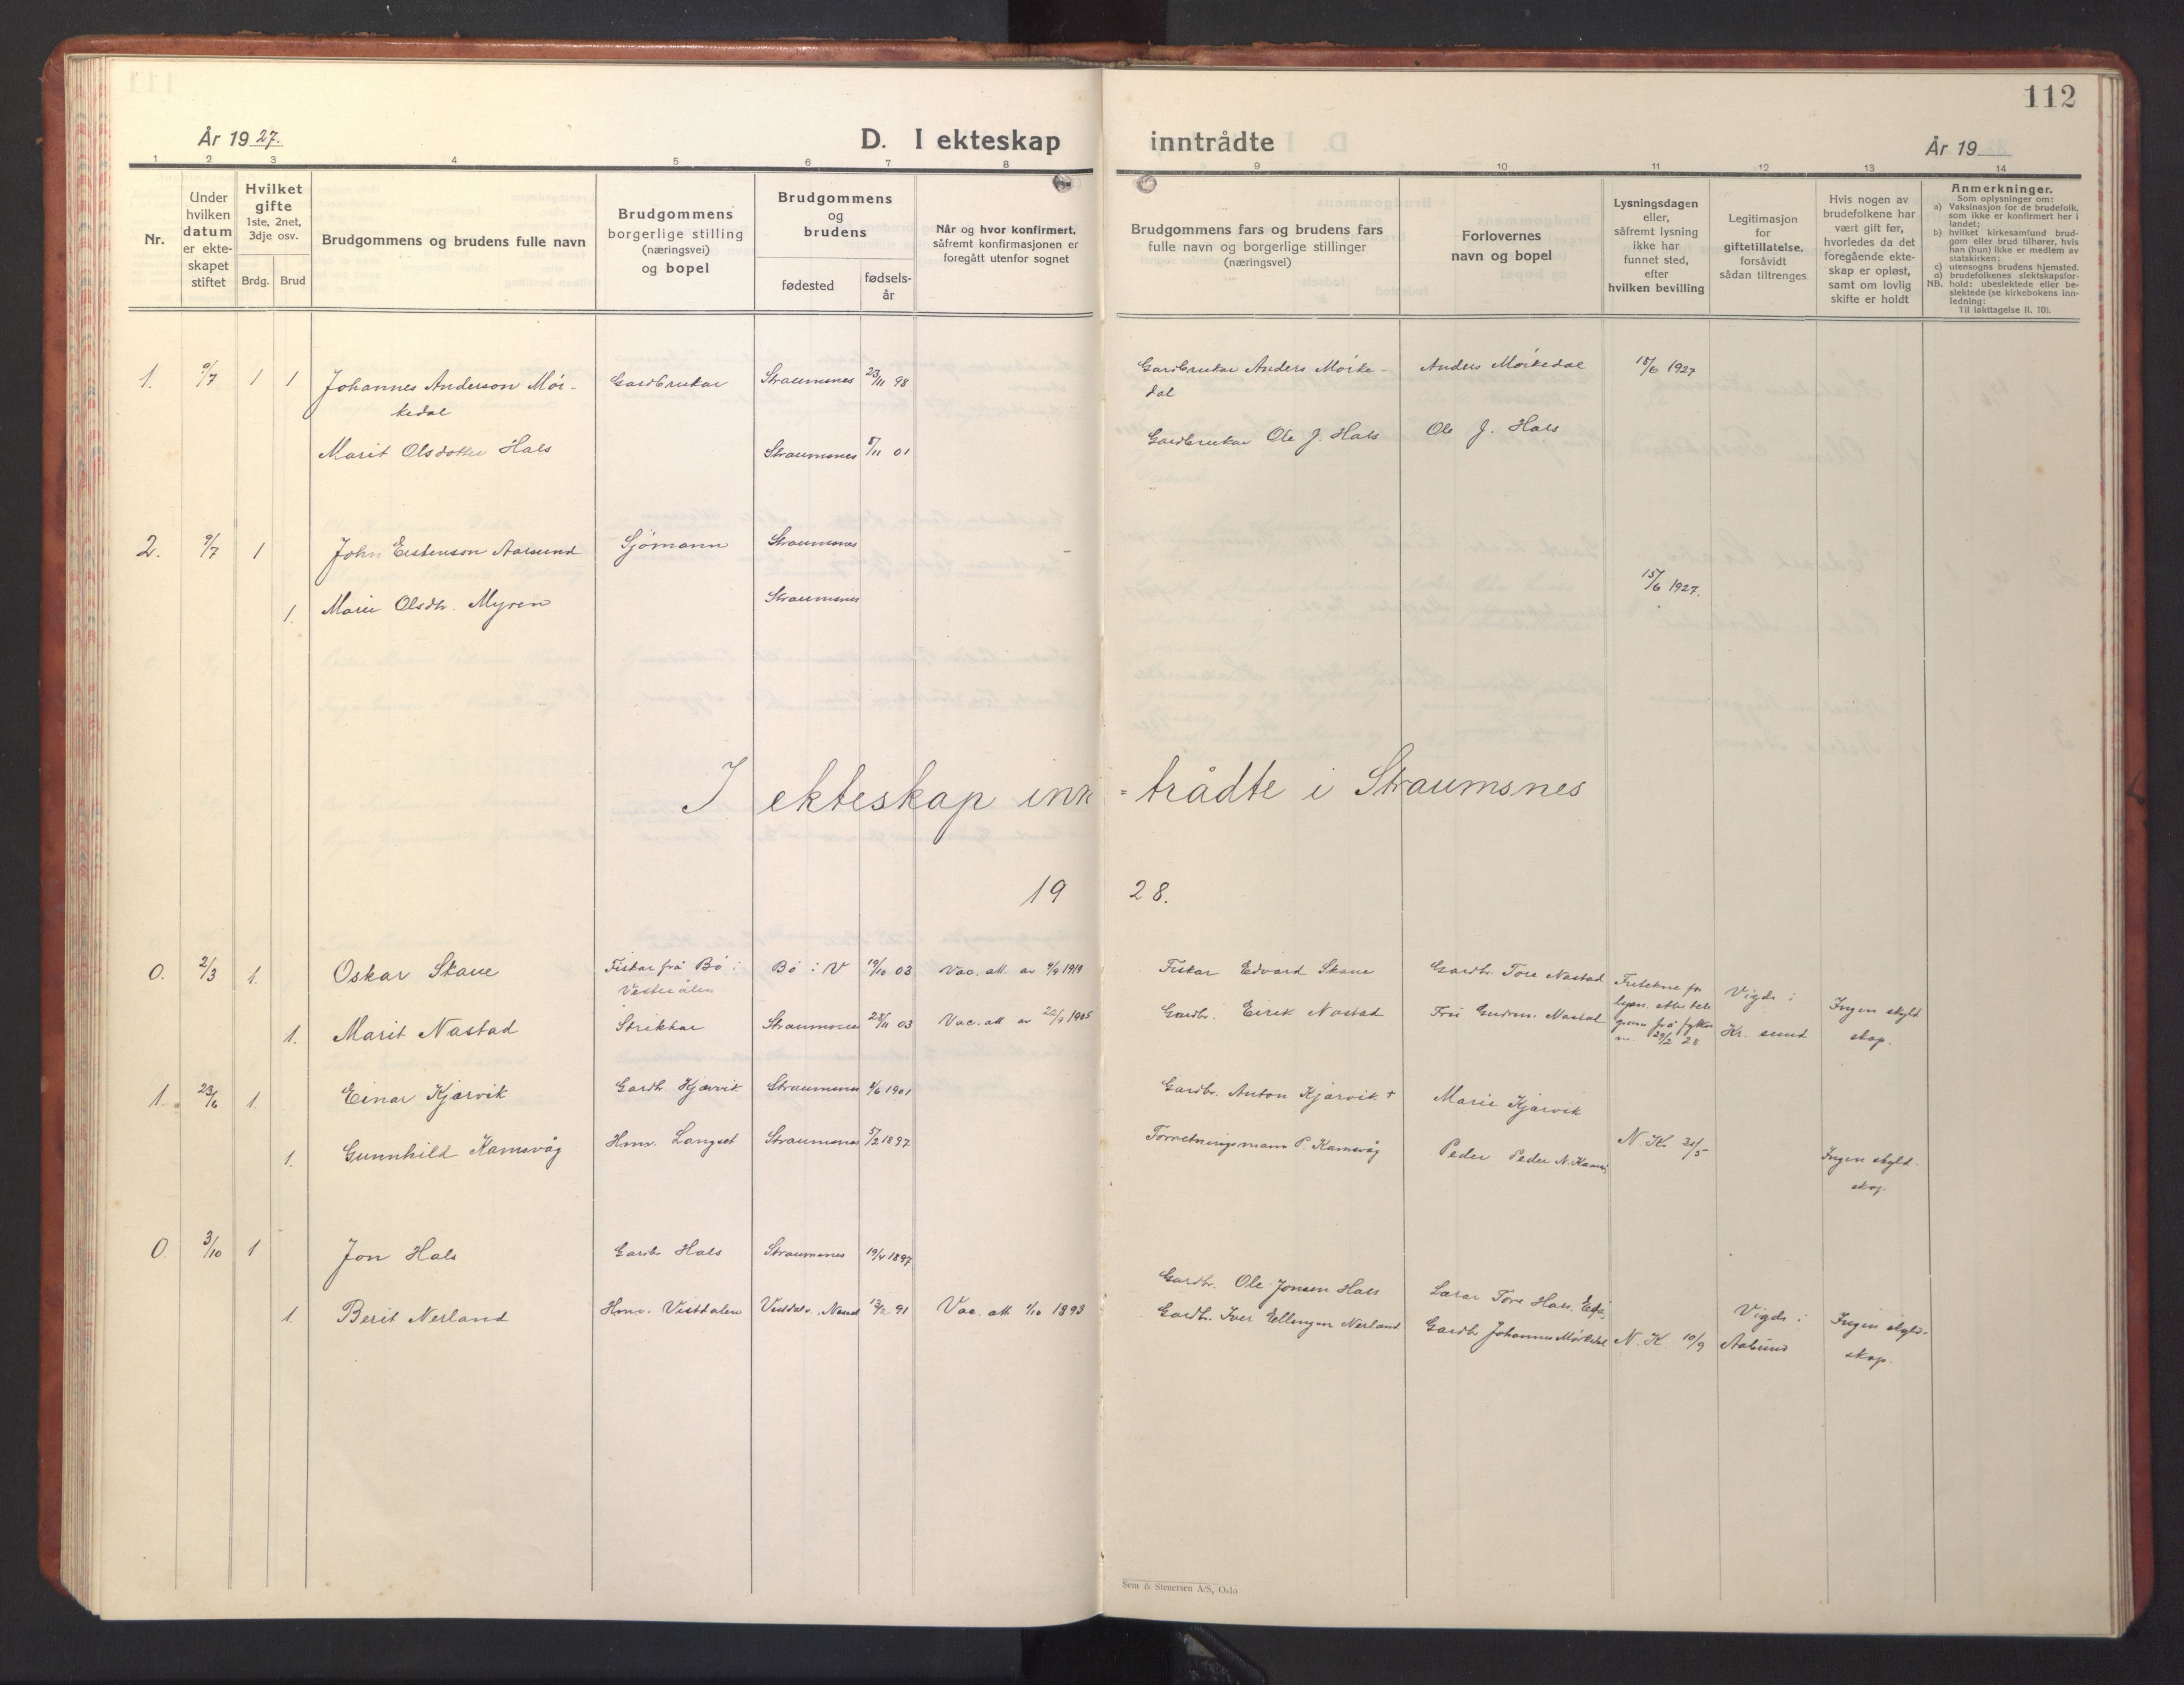 112
År 1927.
D. I ekteskap inntrådte
År 19
1 2 3 4 5 6 7 8 9 10 11 12 13 14
Nr.
Under hvilken datum er ekteskapet stiftet
Hvilket gifte 1ste, 2net, 3dje osv.
Brdg. Brud
Brudgommens og brudens fulle navn
Brudgommens borgerlige stilling (næringsvei) og bopel
Brudgommens og brudens
fødested
fødselsår
Når og hvor konfirmert, såfremt konfirmasjonen er foregått utenfor sognet
Brudgommens fars og brudens fars fulle navn og borgerlige stillinger (næringsvei)
Forlovernes navn og bopel
Lysningsdagen eller, såfremt lysning ikke har funnet sted, efter hvilken bevilling
Legitimasjon for giftetillatelse, forsåvidt sådan tiltrenges
Hvis nogen av brudefolkene har vært gift før, hvorledes da det foregående ekteskap er opløst, samt om lovlig skifte er holdt
Anmerkninger.
Som oplysninger om:
a) Vaksinasjon for de brudefolk, som ikke er konfirmert her i landet;
b) hvilket kirkesamfund brudgom eller brud tilhører, hvis han (hun) ikke er medlem av statskirken;
c) utensogns brudens hjemsted.
d) brudefolkenes slektskapsforhold: ubeslektede eller beslektede (se kirkebokens innledning:
NB.
Til iakttagelse II. 10).
1. 9/7 1 1 Johannes Anderson Mörkedal Gardbrukar Straumsnes 23/11 98 Gardbrukar Anders Mörkedal Anders Mörkedal 15/6 1927
Marit Olsdotter Hals Straumsnes 5/11 01 Gardbrukar Ole J. Hals Ole J. Hals
2. 9/7 1 John Eistenson Aarsund Sjömann Straumsnes
1. Marie Olsdtr. Myren Straumsnes 15/6 1927.
I ekteskap inn=trådte i Straumsnes
1928.
0. 2/3 1. Oskar Skave Fiskar frå Bö i Vesterålen Bö i V 19/10 03 Vac. att. av 9/9 1919 Fiskar Edvard Skave Gardbr. Tore Nastad
1. Marit Nastad Strikkar Straumsnes 03 Vac. att av 1905 Gardbr. Eirik Nastad Fru Gudrun Nastad 29/2 28 Vigde i Kr. sund Ingen skyldskap.
1. 23/6 1. Einar Kjørvik Gardbr. Kjørvik Straumsnes 1901 Gardbr. Anton Kjørvik + Marie Kjørvik
1. Gunnhild Kamsvåg Hmv. Langset Straumsnes 5/2 1897 Forretningsmann P. Kamsvåg Peder N. K. Ingen skyldskap.
0. 3/10 1 Jon Hals Gardbr Hals Straumsnes 19/4 1897 Gardbr. Ole Jonsen Hals Lærar Tore Hals
1. Berit Nerland Hmv. Vistdalen 91 Vac. att 1/10 1893 Gardbr. Iver Ellingsen Nerland Gardbr Johannes Mörkedal N. K. 10/9 Vigde i Aalesund Ingen skyldskap.
Sem & Stenersen A/S, Oslo